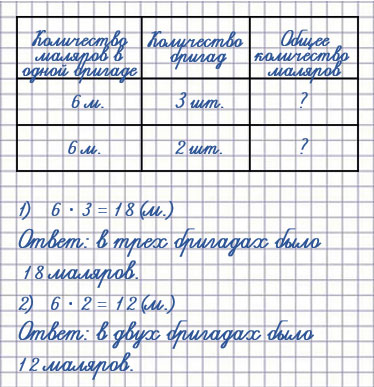 Количество маляров в одной бригаде
Количество бригад
Общее количество маляров
6 м.
3 шт.
?
6 м.
2 шт.
?
1) 6 · 3 = 18 (м.)
Ответ: в трех бригадах было
18 маляров.
2) 6 · 2 = 12 (м.)
Ответ: в двух бригадах было
12 маляров.